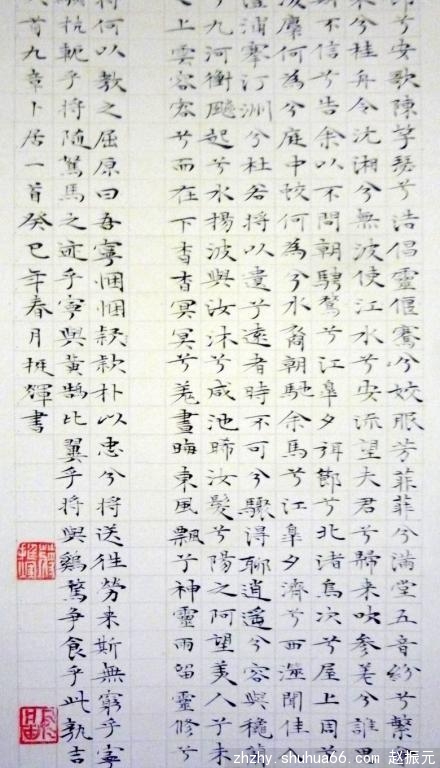 兮安歌陳竽瑟兮浩倡靈偃蹇兮姣服芳菲菲兮滿堂五音紛兮繁
來兮桂舟令沅湘兮無波使江水兮安流望夫君兮歸來吹參差兮誰思
期不信兮告余以不間朝騁騖兮江皋夕弭節兮北渚鳥次兮屋上周兮
波麋何為兮庭中蛟何為兮水裔朝馳余馬兮江皋夕濟兮西澨聞佳人
澧浦搴汀洲兮杜若將以遺兮遠者時不可兮驟得聊逍遙兮容與
兮九河衝飈起兮水揚波與汝沐兮咸池晞汝髮兮陽之阿望美人兮未
之上雲容容兮而在下杳杳冥冥兮羌晝晦東風飄兮神靈雨留靈修兮
將何以教之屈原曰吾寧悃悃款款朴以忠兮將送往勞來斯無窮乎寧
抗軛乎將隨駑馬之迹乎寧與黃鵠比翼乎將與雞鶩爭食乎此孰吉
首九章卜居一首癸巳年春月挺輝書
zhzhy.shuhua66.com 赵振元